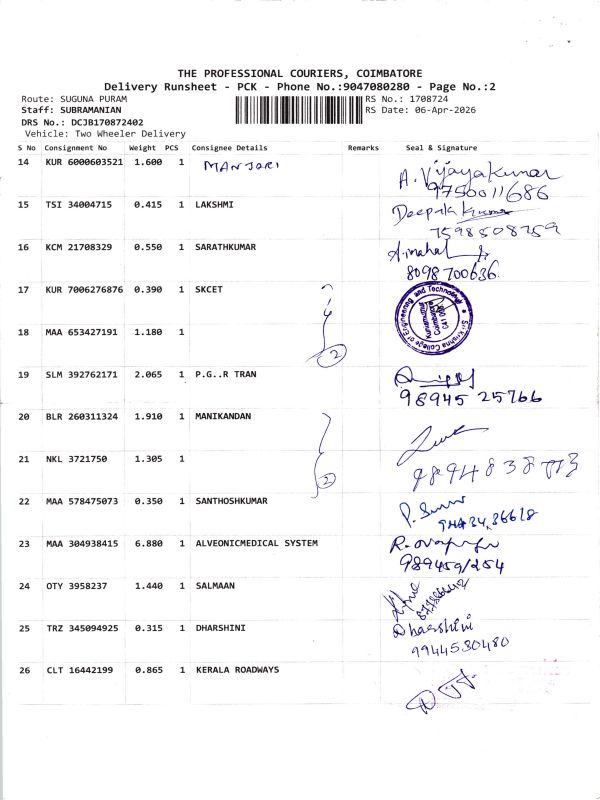 THE PROFESSIONAL COURIERS, COIMBATORE
Delivery Runsheet - PCK - Phone No.:9047080280 - Page No.:2
Route: SUGUNA PURAM RS No.: 1708724
Staff: SUBRAMANIAN RS Date: 06-Apr-2026
DRS No.: DCJB170872402
Vehicle: Two Wheeler Delivery
S No Consignment No Weight PCS Consignee Details Remarks Seal & Signature
14 KUR 6000603521 1.600 1 MANJARI A. Vijayakumar
9750011686
15 TSI 34004715 0.415 1 LAKSHMI Deepak Kumar
7598508759
16 KCM 21708329 0.550 1 SARATHKUMAR
8098700636
17 KUR 7006276876 0.390 1 SKCET
Sri Krishna College of Engineering and Technology
18 MAA 653427191 1.180 1
2
19 SLM 392762171 2.065 1 P.G..R TRAN
98945 25766
20 BLR 260311324 1.910 1 MANIKANDAN
21 NKL 3721750 1.305 1
2
22 MAA 578475073 0.350 1 SANTHOSHKUMAR
23 MAA 304938415 6.880 1 ALVEONICMEDICAL SYSTEM
24 OTY 3958237 1.440 1 SALMAAN
25 TRZ 345094925 0.315 1 DHARSHINI Dharshini
9944530480
26 CLT 16442199 0.865 1 KERALA ROADWAYS